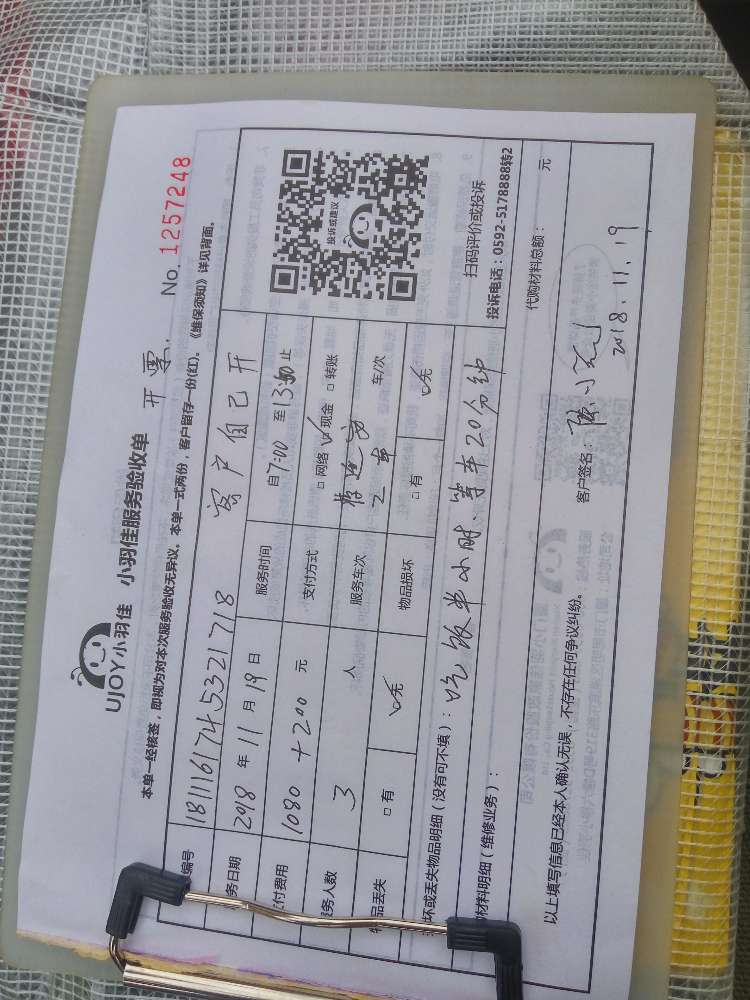 UJOY小羽佳 小羽佳服务验收单 开票.
No. 1257248
本单一经核签,即视为对本次服务验收无异议。本单一式两份,客户留存一份(红)。《维保须知》详见背面。
编号 1811161745321718 客户自己开
务日期 2018 年 11 月 19 日 服务时间 自7:00 至13:50 止
付费用 1080 + 200 元 支付方式 □ 网络 ☑ 现金 □ 转账
服务人数 3 人 服务车次 2 车 车/次
物品丢失 □ 有 ☑ 无 物品损坏 □ 有 ☑ 无
投诉或建议
扫码评价或投诉
投诉电话:0592-5178888转2
坏或丢失物品明细(没有可不填):吃饭半小时、等车20分钟
材料明细(维修业务):
代购材料总额: 元
以上填写信息已经本人确认无误,不存在任何争议纠纷。 客户签名:
2018.11.19